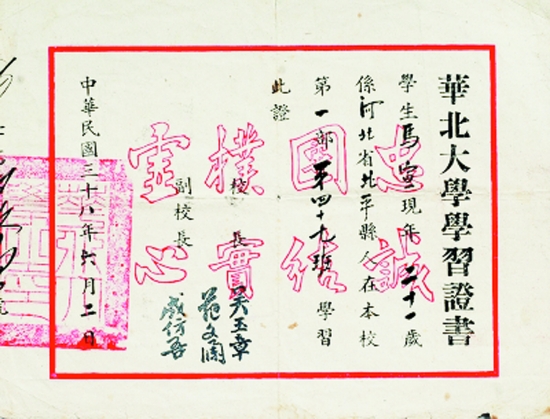 華北大學學習證書
學生馬寧現年二十一歲
係河北省北平縣人在本校
第一部第四十九班學習
此證
忠誠
團結
樸實
虛心
校長 吳玉章
副校長 范文瀾
成仿吾
中華民國三十八年六月二日